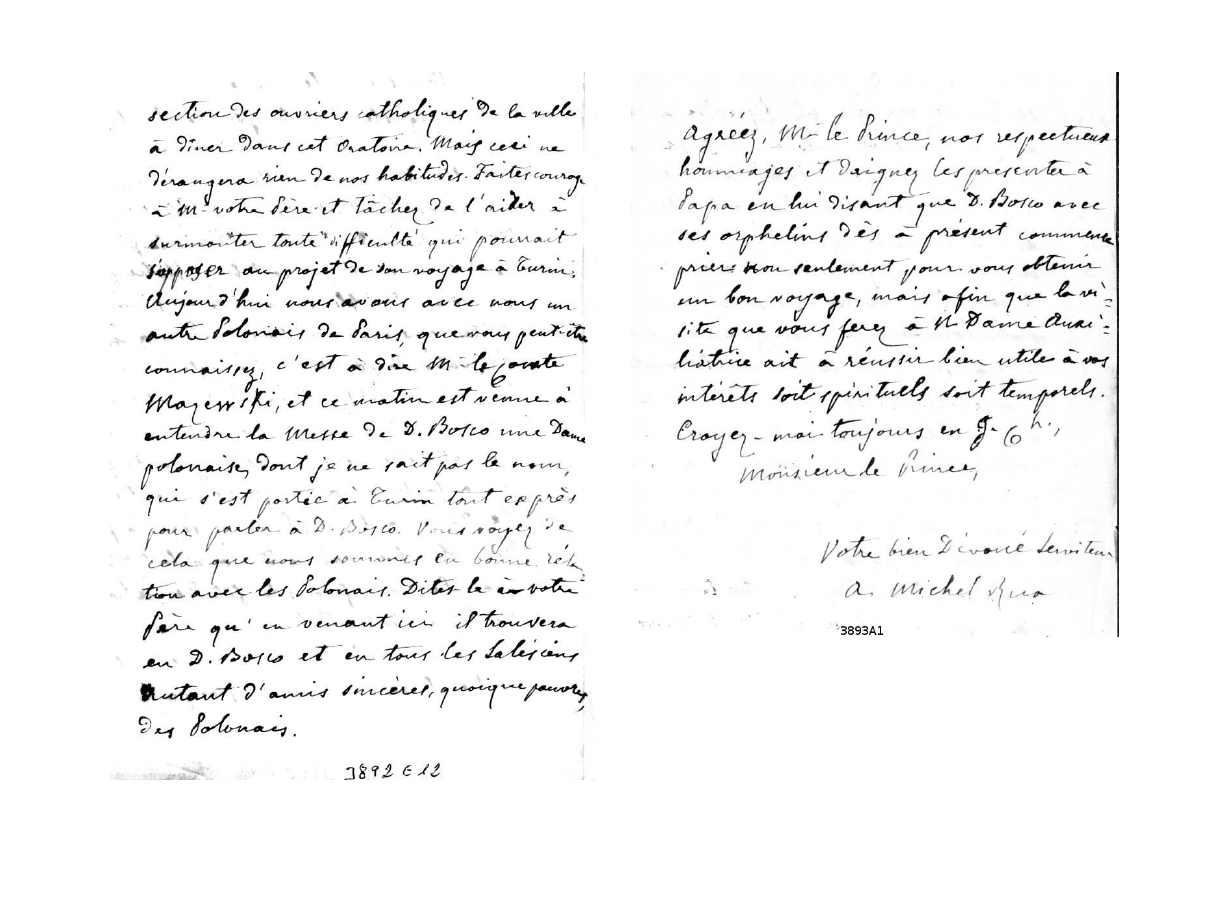 section des ouvriers catholiques de la ville
à dîner dans cet Oratoire. Mais ceci ne
dérangera rien de nos habitudes. Faites courage
à Mr votre Père et tâchez de l'aider à
surmonter toute difficulté qui pourrait
s'opposer au projet de son voyage à Turin.
Aujourd'hui nous avons avec nous un
autre Polonais de Paris, que vous peut-être
connaissez, c'est à dire Mr le Comte
Mazewski, et ce matin est venue à
entendre la Messe de D. Bosco une Dame
polonaise, dont je ne sait pas le nom,
qui s'est portée à Turin tout exprès
pour parler à D. Bosco. Vous voyez de
cela que nous sommes en bonne réla
tion avec les Polonais. Dites-le à votre
Père qu'en venant ici il trouvera
en D. Bosco et en tous les Salésiens
autant d'amis sincères, quoique pauvres,
des Polonais.
3892 E 12
Agréez, Mr le Prince, nos respectueux
hommages et daignez les presenter à
Papa en lui disant que D. Bosco avec
ses orphelins dès à présent commence
prier non seulement pour vous obtenir
un bon voyage, mais afin que la vi-
site que vous ferez à N. Dame Auxi-
liatrice ait à réussir bien utile à vos
intérêts soit spirituels soit temporels.
Croyez-moi toujours en J. Ch.,
Monsieur le Prince,
Votre bien Dévoué Serviteur
A. Michel Rua
3893A1